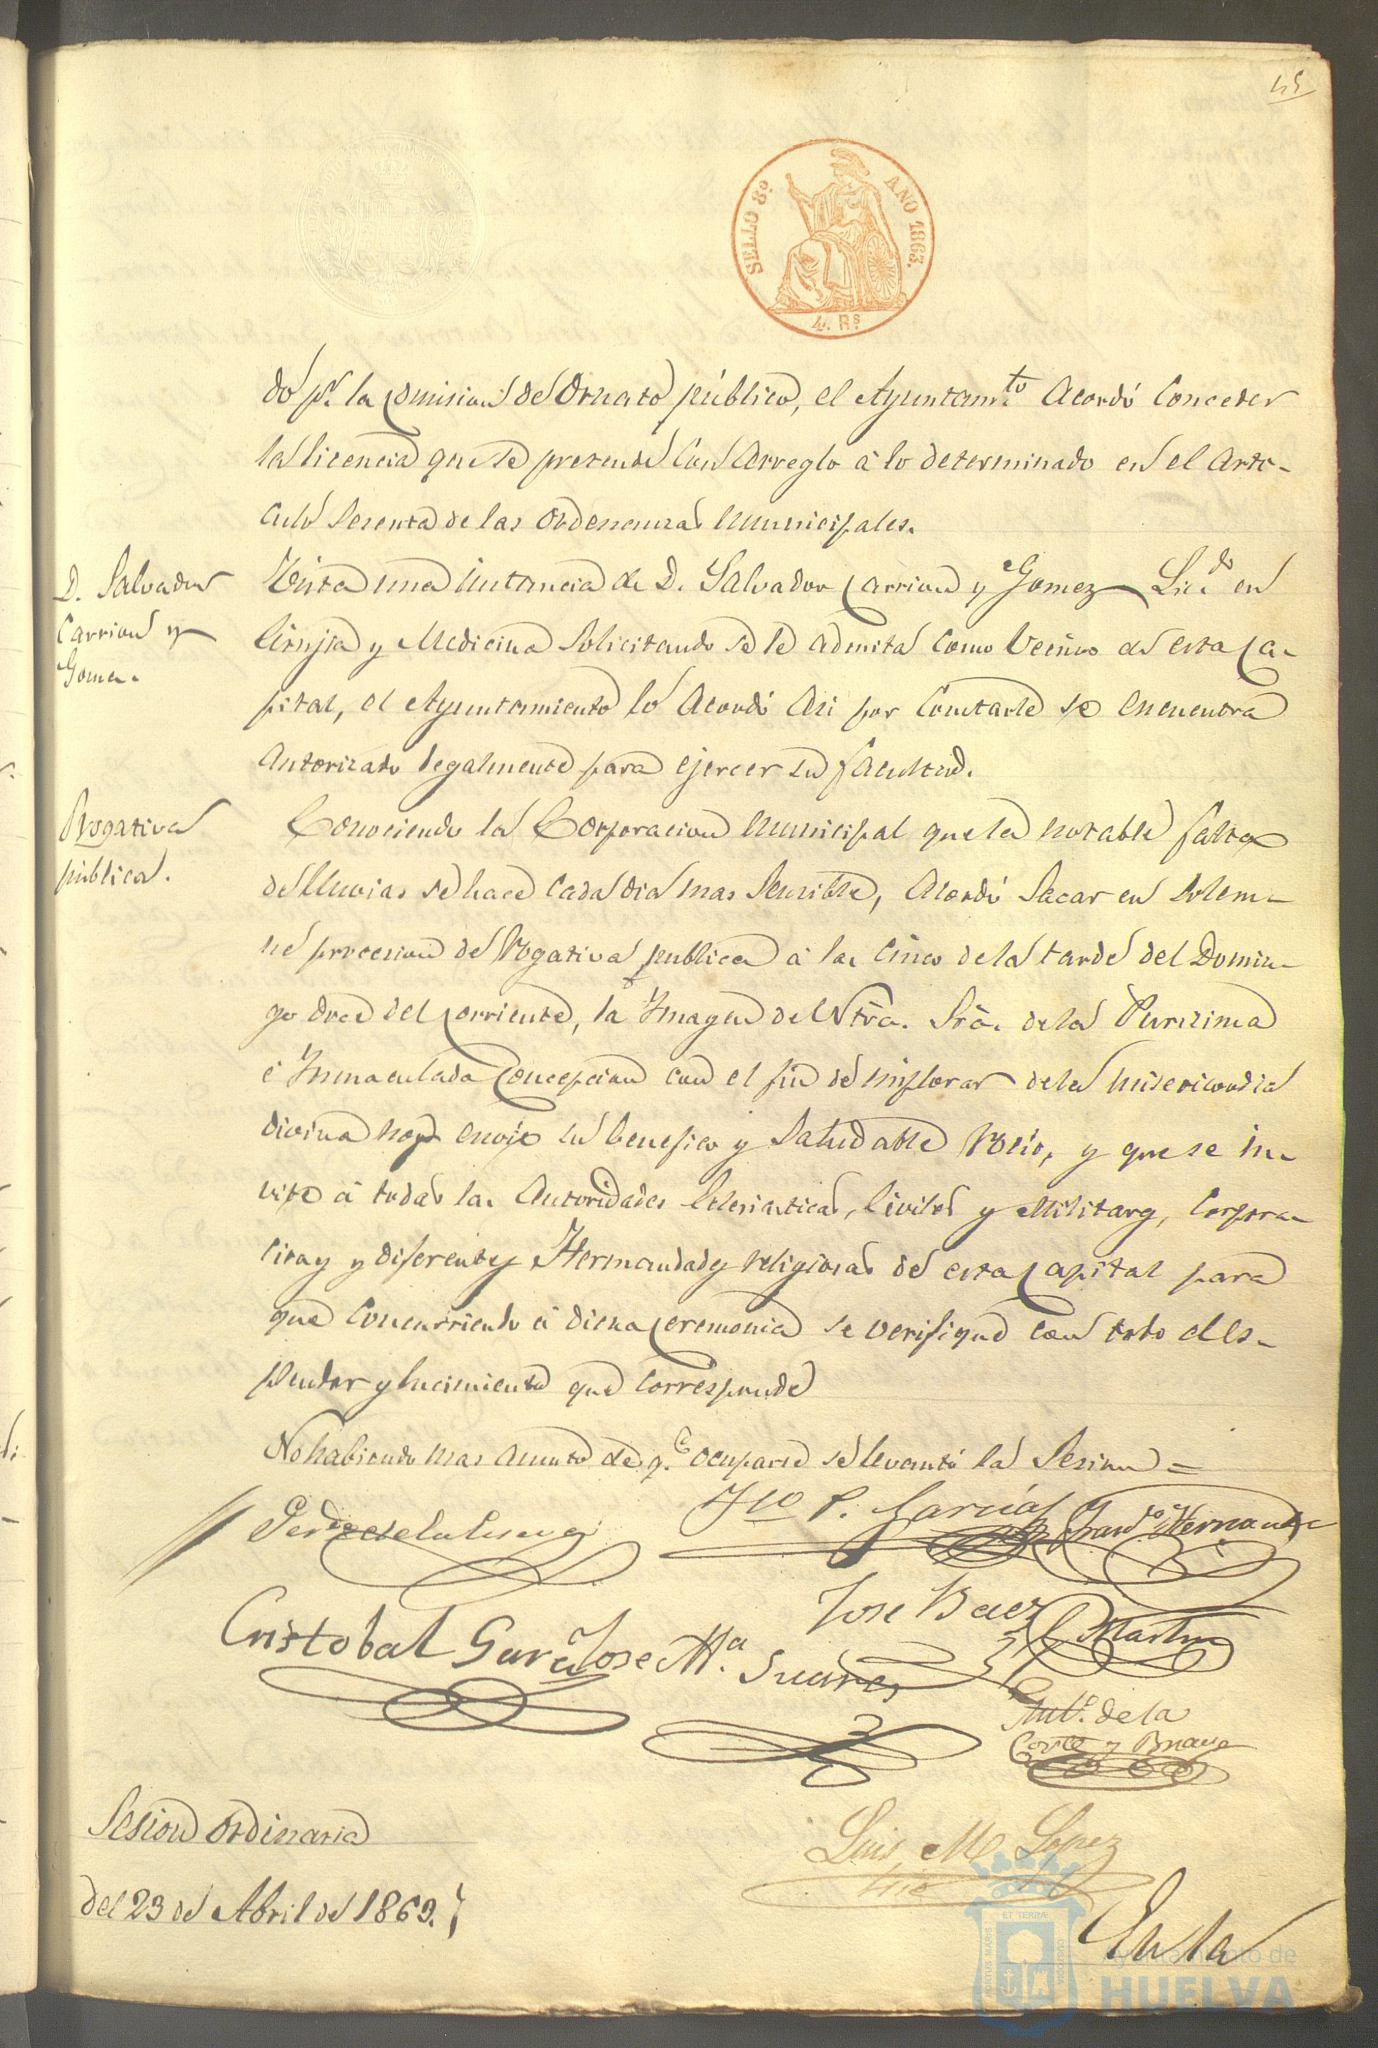 45
SELLO 8º AÑO 1863.
4. Rs
do pr. la Comision de Ornato público, el Ayuntamto. Acordó Conceder
la licencia que se pretende Con Arreglo á lo determinado en el Arti-
culo Sesenta de las Ordenanzas Municipales.
D. Salvador
Carrion y
Gomez.
Vista una instancia de D. Salvador Carrion y Gomez Licdo. en
Cirujia y Medicina Solicitando se le admita Como Vecino de esta Ca-
pital, el Ayuntamiento lo Acordó Asi por Constarle se encuentra
Autorizado legalmente para ejercer su facultad.
Rogativa
pública.
Conociendo la Corporacion Municipal que la notable falta
de lluvias se hace Cada dia mas Sensible, Acordó Sacar en Solem-
ne procesion de Rogativa publica á las Cinco de la tarde del Domin-
go doce del Corriente, la Imagen de Ntra. Sra. de la Purisima
é Inmaculada Concepcion con el fin de implorar de la Misericordia
divina nos envie su benefico y Saludable Rocio, y que se in-
vite á todas las Autoridades Eclesiasticas, Civiles y Militares, Corpora-
ciones y diferentes Hermandades religiosas de esta Capital para
que Concurriendo á dicha Ceremonia se verifique con todo el es-
plendor y lucimiento que Corresponde
No habiendo mas asunto de qe. ocuparse se levantó la Sesion =
Fco P. Garcia Frando Hernandez
Jose Baez Martin
Cristobal Garcia Jose Ma. Suarez
Anto. de la
Corte y
Luis M Lopez
Srio
Sesion ordinaria
del 23 de Abril de 1863.
En la
PORTUS MARIS ET TERRÆ CUSTODIA
Ayuntamiento de
HUELVA